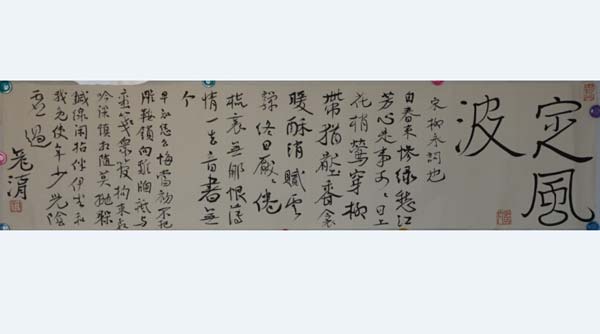 定風
波
宋柳永詞也
自春來慘綠愁紅
芳心是事可可日上
花梢鶯穿柳
帶猶壓香衾
暖酥消膩雲
嚲終日厭厭倦
梳裹無那恨薄
情一去音書無
个
早知恁么悔當初不把
雕鞍鎖向雞窗祗與
蠻箋象管拘束教
吟課鎮相隨莫拋躲
鍼線閒拈伴伊坐和
我免使年少光陰
虛過